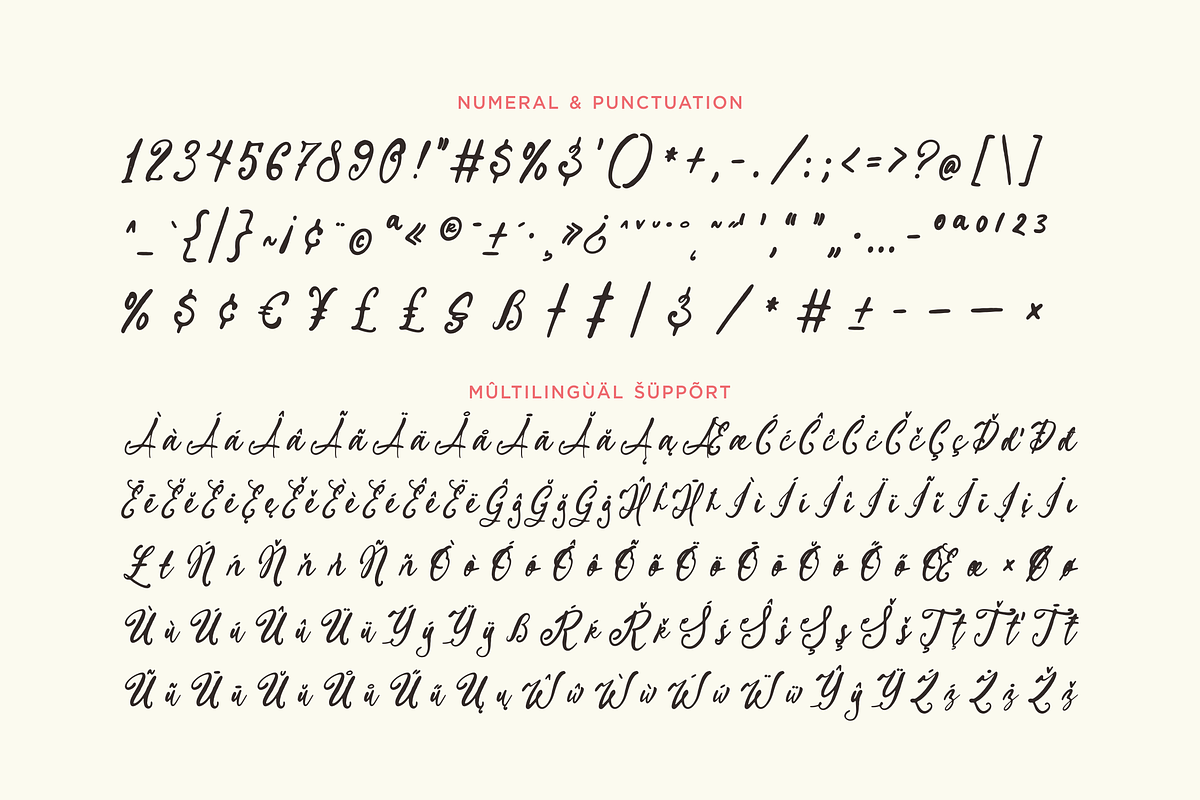 NUMERAL & PUNCTUATION
1234567890!"#$%&'()*+,-./:;<=>?@[\]
^_`{|}~¡¢¨©ª«®¯±´·¸»¿ˆˇ˘˙˚˛˜˝‘‚“”„•…-⁰ªº¹²³
%$¢€¥£₤§ß†‡|&/*#±-–—×
MÛLTILINGÙÄL ŠÜPPÕRT
ÀàÁáÂâÃãÄäÅåĀāĂăĄąÆæĆćĈĉĊċČčÇçĎďĐđ
ĒēĔĕĖėĘęĚěÈèÉéÊêËëĜĝĞğĠġĤĥĦħÌìÍíÎîÏïĨĩĪīĮįİı
ŁłŃńŇňŉÑñÒòÓóÔôÕõÖöŌōŎŏŐőŒœ×Øø
ÙùÚúÛûÜüÝýŸÿßŔŕŘřŚśŜŝŞşŠšŢţŤťŦŧ
ŨũŪūŬŭŮůŰűŲųŴŵẀẁẂẃẄẅŶŷŸŹźŻżŽž